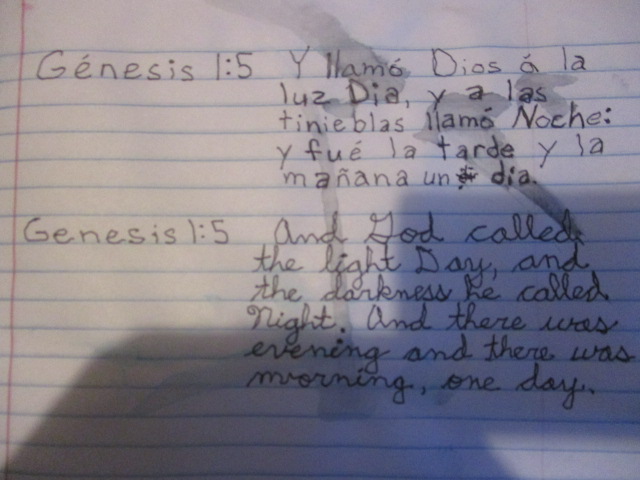 Génesis 1:5 Y llamó Dios á la
luz Dia, y a las
tinieblas llamó Noche:
y fué la tarde y la
mañana un dia.
Genesis 1:5 And God called
the light Day, and
the darkness he called
Night. And there was
evening and there was
morning, one day.